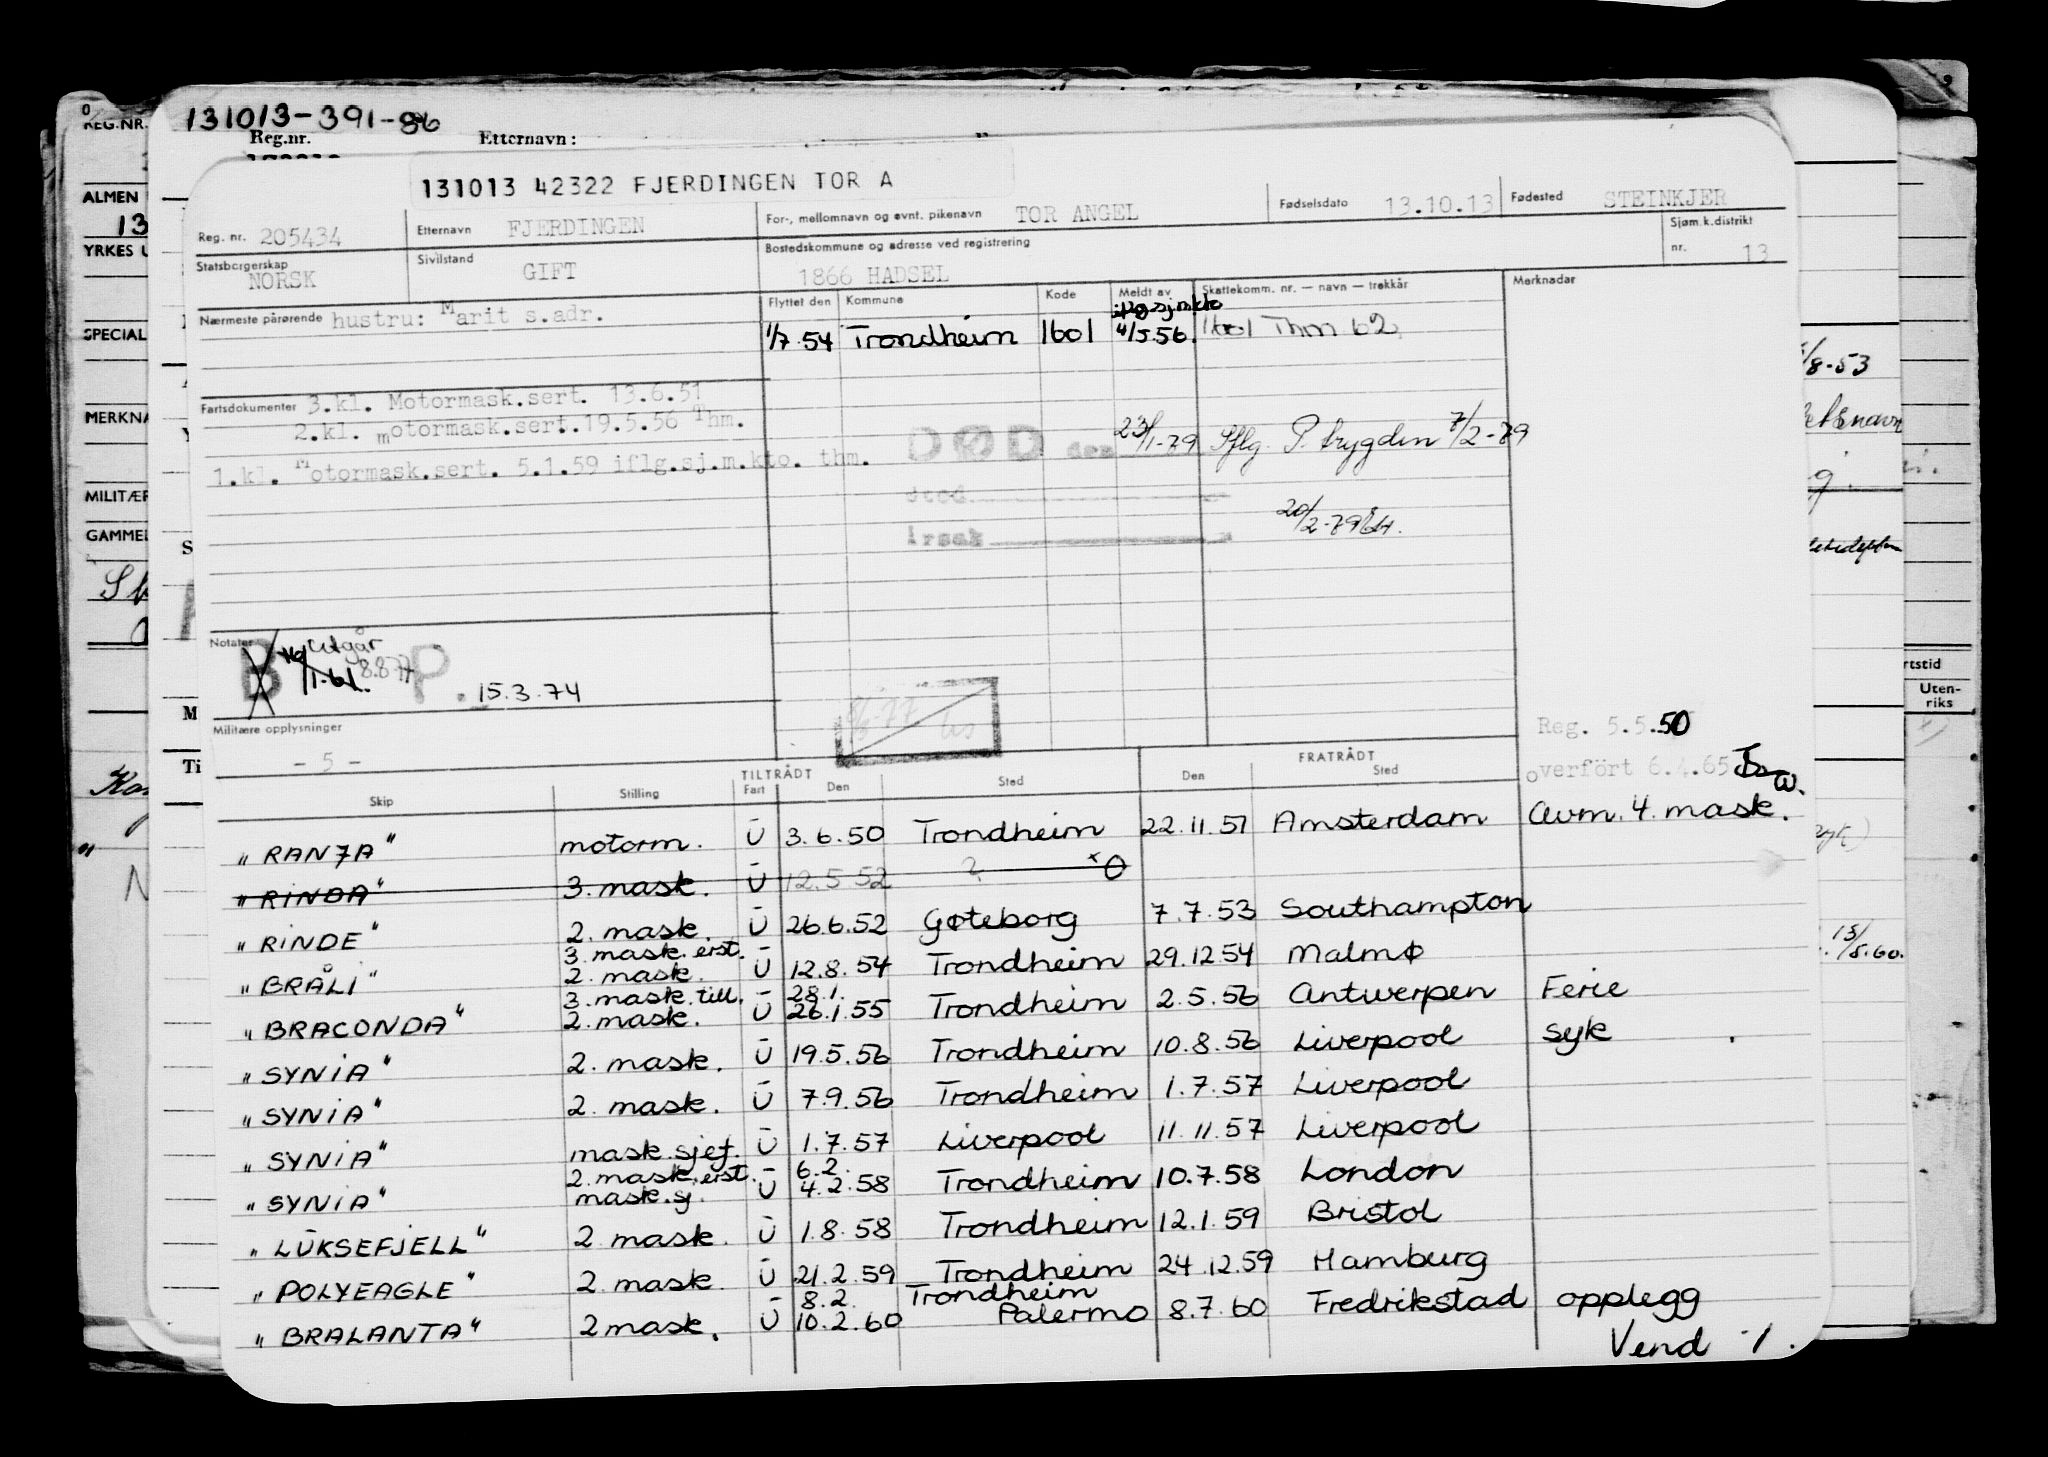 131013-391-86
REG.NR. Reg.nr. Etternavn:
131013 42322 FJERDINGEN TOR A
Reg. nr. 205434 Etternavn FJERDINGEN For-, mellomnavn og evnt. pikenavn TOR ANGEL Fødselsdato 13.10.13 Fødested STEINKJER
Statsborgerskap NORSK Sivilstand GIFT Bostedskommune og adresse ved registrering 1866 HADSEL Sjøm.k.distrikt nr. 13
Nærmeste pårørende hustru: Marit s.adr.
Flyttet den Kommune Kode Meldt av Skattekomm. nr. — navn — trekkår Merknader
1/7.54 Trondheim 1601 4/5.56. 1601 Thm 62
Fartsdokumenter 3.kl. Motormask.sert. 13.6.51
2.kl. motormask.sert.19.5.56 Thm.
1.kl. Motormask.sert. 5.1.59 iflg.sj.m.kto. thm.
DØD den 23/1-79 Iflg. P. trygden 7/2-79
sted
Årsak
20/2-79
Notater B Utgår 8.8.77 P. 15.3.74
Militære opplysninger
- 5 -
Reg. 5.5.50
overfört 6.4.65
TILTRÅDT FRATRÅDT
Skip Stilling Fart Den Sted Den Sted
"RANJA" motorm. U 3.6.50 Trondheim 22.11.51 Amsterdam Avm. 4. mask.
"RINDA" 3. mask. U 12.5.52 ?
"RINDE" 2. mask. U 26.6.52 Gøteborg 7.7.53 Southampton
"BRÅLI" 3. mask. erst. 2. mask. U 12.8.54 Trondheim 29.12.54 Malmø
"BRACONDA" 3. mask. till. 2. mask. U 28.1. 26.1.55 Trondheim 2.5.56 Antwerpen Ferie
"SYNIA" 2. mask. U 19.5.56 Trondheim 10.8.56 Liverpool Syk
"SYNIA" 2. mask. U 7.9.56 Trondheim 1.7.57 Liverpool
"SYNIA" mask.sjef. U 1.7.57 Liverpool 11.11.57 Liverpool
"SYNIA" 2. mask. erst. mask.sj. U 6.2. 4.2.58 Trondheim 10.7.58 London
"LUKSEFJELL" 2 mask. U 1.8.58 Trondheim 12.1.59 Bristol
"POLYEAGLE" 2. mask. U 21.2.59 Trondheim 24.12.59 Hamburg
"BRALANTA" 2 mask. U 8.2. 10.2.60 Trondheim Palermo 8.7.60 Fredrikstad opplegg
Vend 1.
ALMEN
13
YRKES U
SPECIAL
MERKNA
MILITÆR
GAMMEL
/8-53
15/5.60.
rtstid
Uten-
riks